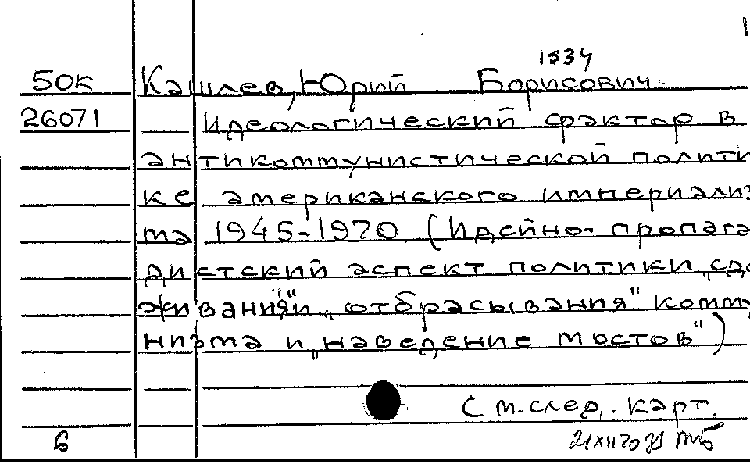 1
1934
50к Кашлев, Юрий Борисович.
26071 Идеологический фактор в
антикоммунистической полити
ке американского империализ
ма 1945-1970 (Идейно-пропага
дистский аспект политики „сдер
живания" и „отбрасывания" комму
низма и „наведение мостов")
См. след. карт.
6